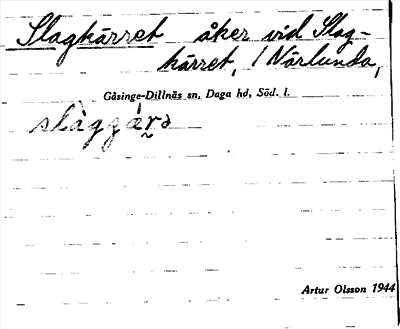 Slagkärret åker vid Slag-
kärret, 1 Närlunda,
Gåsinge-Dillnäs sn, Daga hd, Söd. l.
Artur Olsson 1944